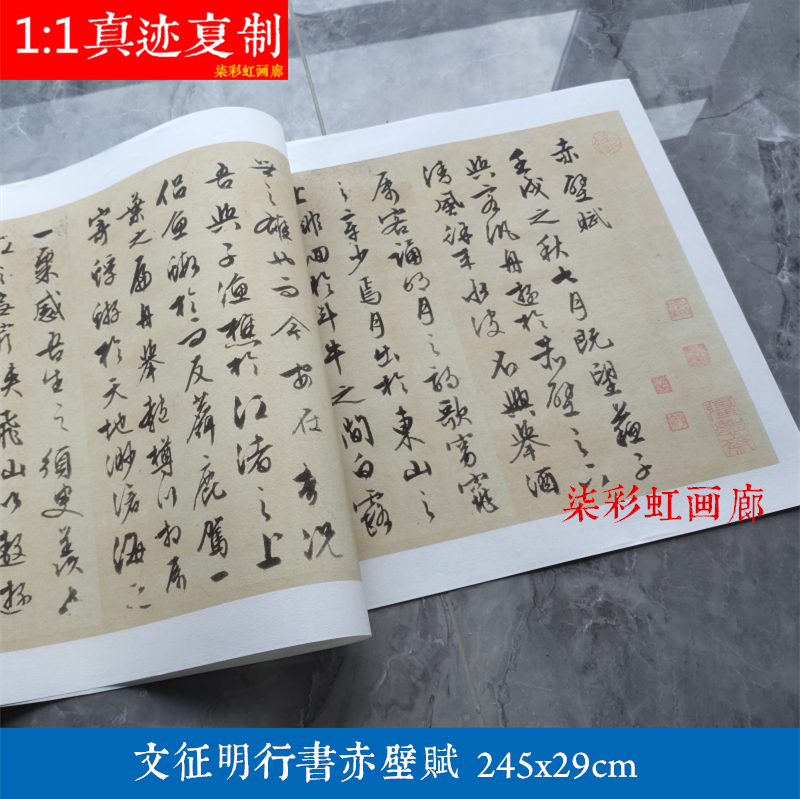 1:1真迹复制
柒彩虹画廊
赤壁賦
壬戌之秋七月既望蘇子
與客汎舟遊於赤壁之下
清風徐來水波不興舉酒
屬客誦明月之詩歌窈窕
之章少焉月出於東山之
上徘徊於斗牛之間白露
世之雄也而今安在哉況
吾與子漁樵於江渚之上
侶魚蝦而友麋鹿駕一
葉之扁舟舉匏樽以相屬
寄蜉蝣於天地渺滄海之
一粟感吾生之須臾羨長
窮挾飛仙以遨遊
柒彩虹画廊
文征明行書赤壁賦 245x29cm